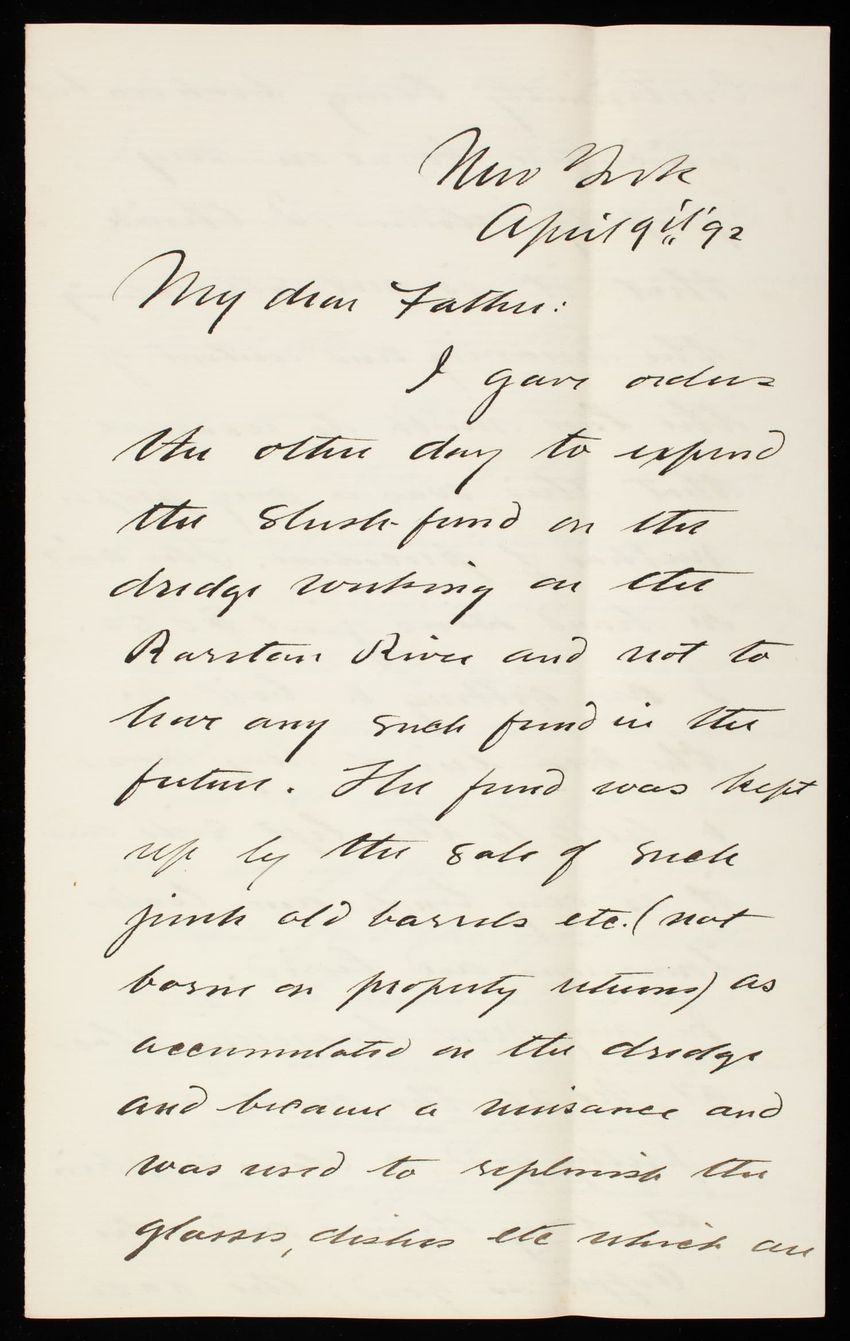 New York
April 9th 92
My dear Father:
I gave orders
the other day to expend
the slush-fund on the
dredge working on the
Raritan River and not to
have any such fund in the
future. The fund was kept
up by the sale of such
junk old barrels etc. (not
borne on property returns) as
accumulated on the dredge
and became a nuisance and
was used to replenish the
glasses, dishes etc which are